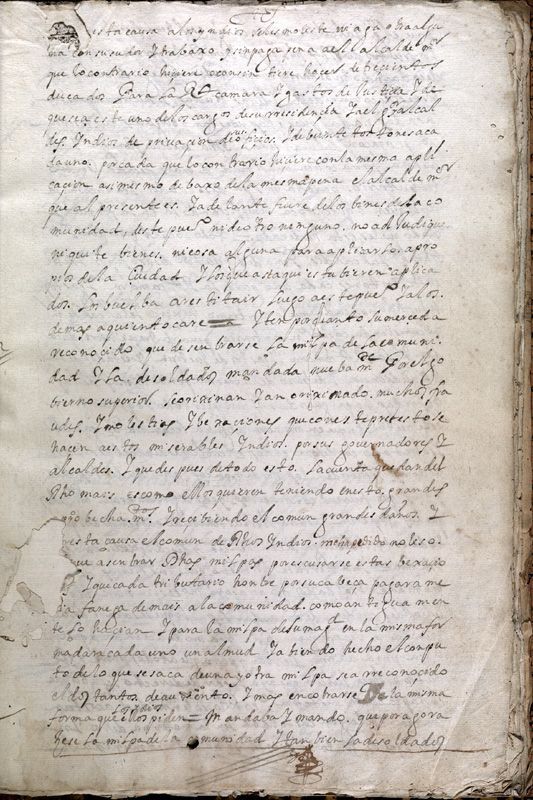 esta causa a los
ma con su sudor y trabaxo y sin paga pena a el alcalde mor
que lo contrario hiziere o consintiere hacer de trecientos
ducados Para la Rl camara y gastos de Justicia y de
que sea este uno de los cargos de su residencia y a el alcal
des Indios de privacion de ofisios y de beinte tostones a ca
da uno por cada que lo contrario hiziere con la mesma apli
cacion asimesmo debaxo de la mesma pena el alcalde mor
que al presente es y adelante fuere de los bienes de la co
munidad deste pueo ni de otro ninguno no adJudique
ni quite bienes ni cosa alguna para aplicarlo a pro
pios de la Ciudad y los que asta qui estubieren aplica
dos los buelba a restituir luego a este pueo y a los
demas a quien tocare = yten por quanto su merced a
reconocido que de senbrarse la milpa de la comuni
dad y la de soldados mandada nueba mte Por el go
bierno superior se orixinan y an orixinado muchos frau
udes y molestias y bexaciones que con este pretesto se
hacen a estos miserables Indios por sus governadores y
alcaldes y que despues de todo esto la cuenta que dan del
Dho mais es como ellos quieren teniendo en esto grandes
aprobechamtos y recibiendo el comun grandes daños y
esta causa el comun de Dhos Indios
a senbrar Dhas milpas por escusarse estas bexacio
y que cada tributario honbre por su cabeça pagara me
dia fanega de mais a la comunidad como antigua men
te lo hacian y para la milpa de su magd en la misma for
ma dara cada uno un almud y abiendo hecho el conpu
to de lo que se saca de una y otra milpa se a reconocido
el dos tantos de aumento y mas en cobrarse De la misma
forma que ellos piden = Mandaba y mando que por agora
sese la milpa de la comunidad y tanbien la de soldados